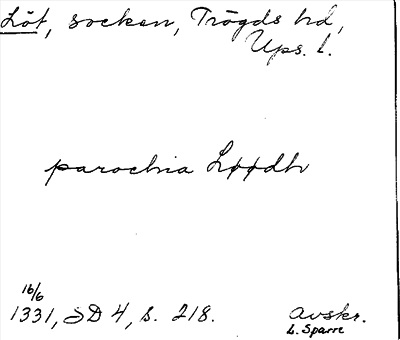 Löt, socken, Trögds hd,
Ups. l.
parochia Løødh
16/6
1331, SD 4, s. 218.
Avskr.
L. Sparre